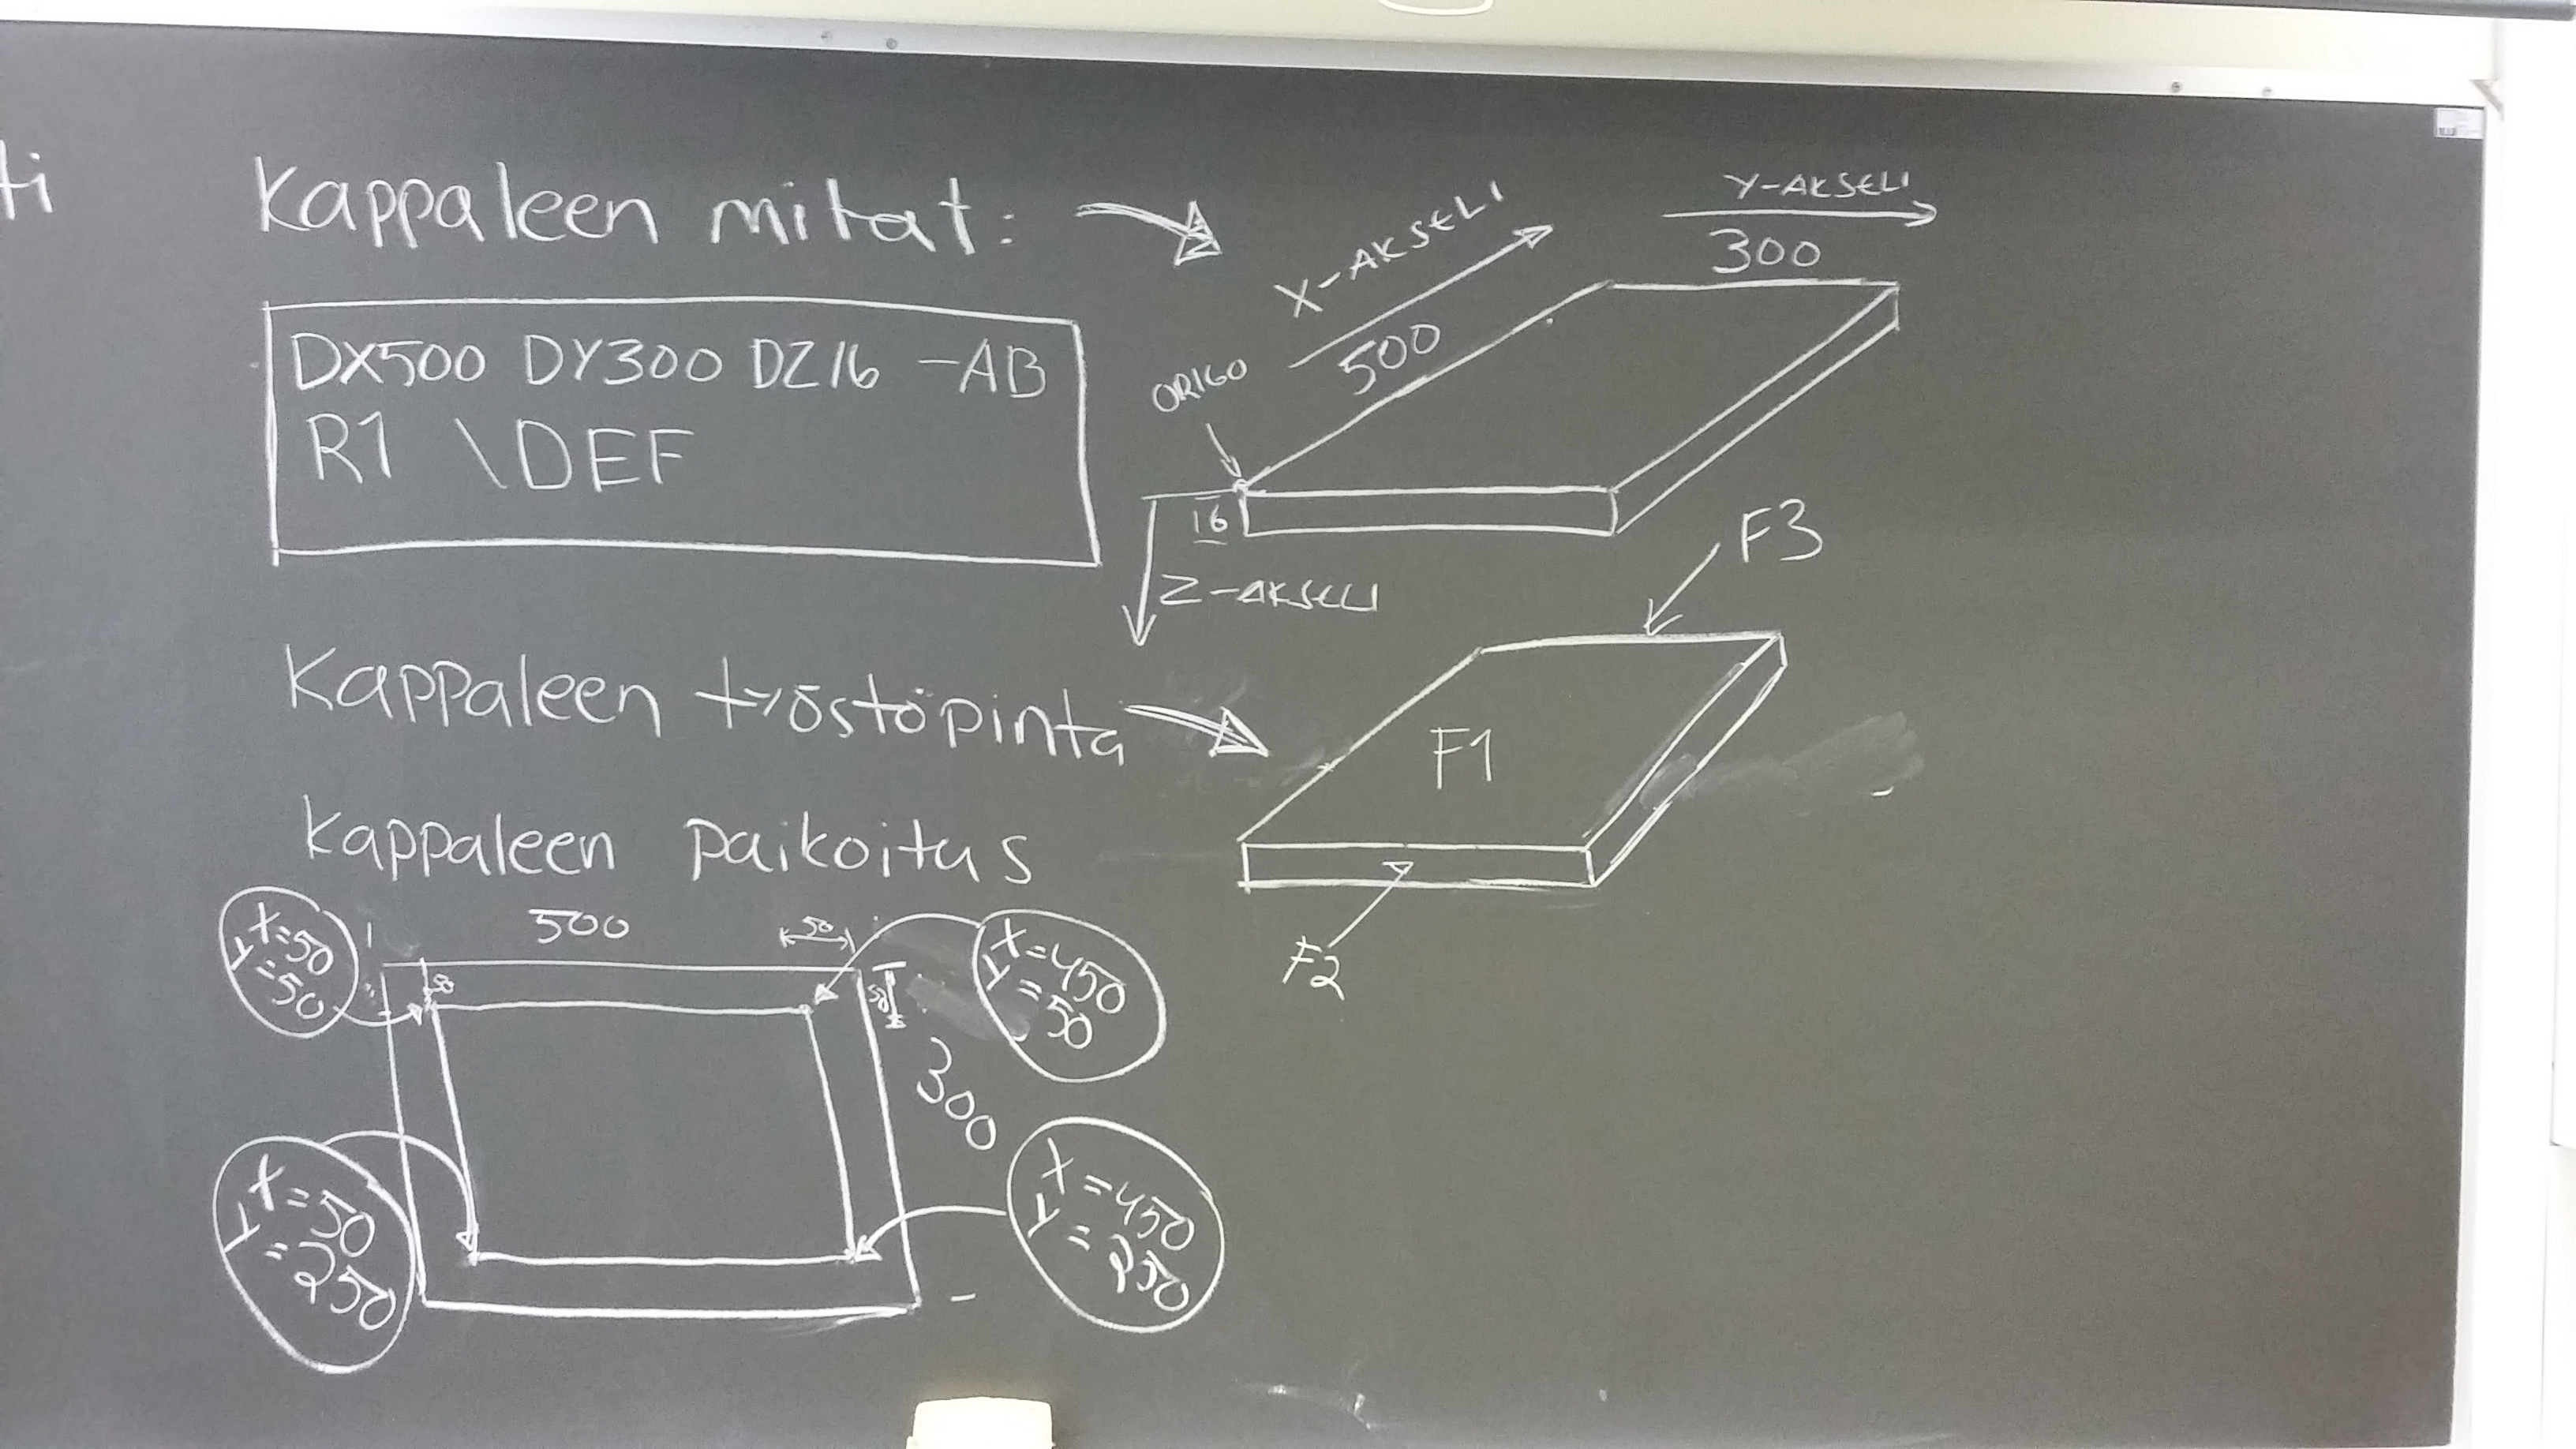 ti
Kappaleen mitat:
DX500 DY300 DZ16 -AB
R1 \DEF
X-AKSELI
500
Y-AKSELI
300
ORIGO
16
Z-AKSELI
Kappaleen työstöpinta
F3
F1
F2
Kappaleen paikoitus
500
50
X=50
Y=50
50
X=450
Y=50
50
300
X=50
Y=250
X=450
Y=250